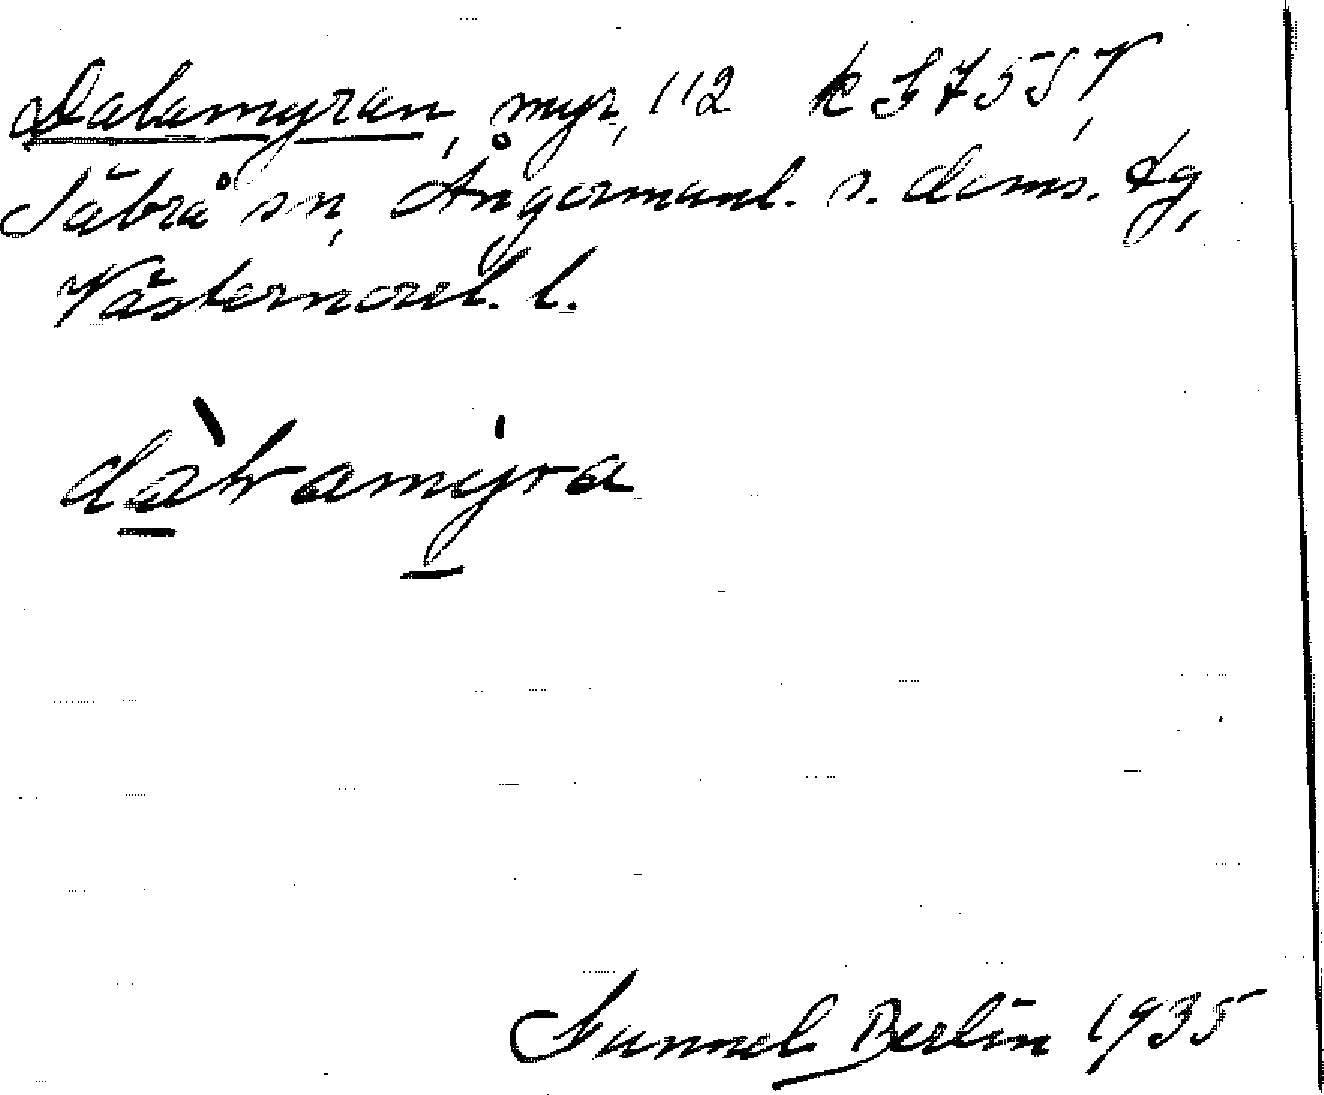 Dalamyran, myr, 112 k F7557,
Säbrå sn, Ångermanl. s. doms. tg,
Västernorrl. l.
dàlamyra
Gunnel Berlin 1935